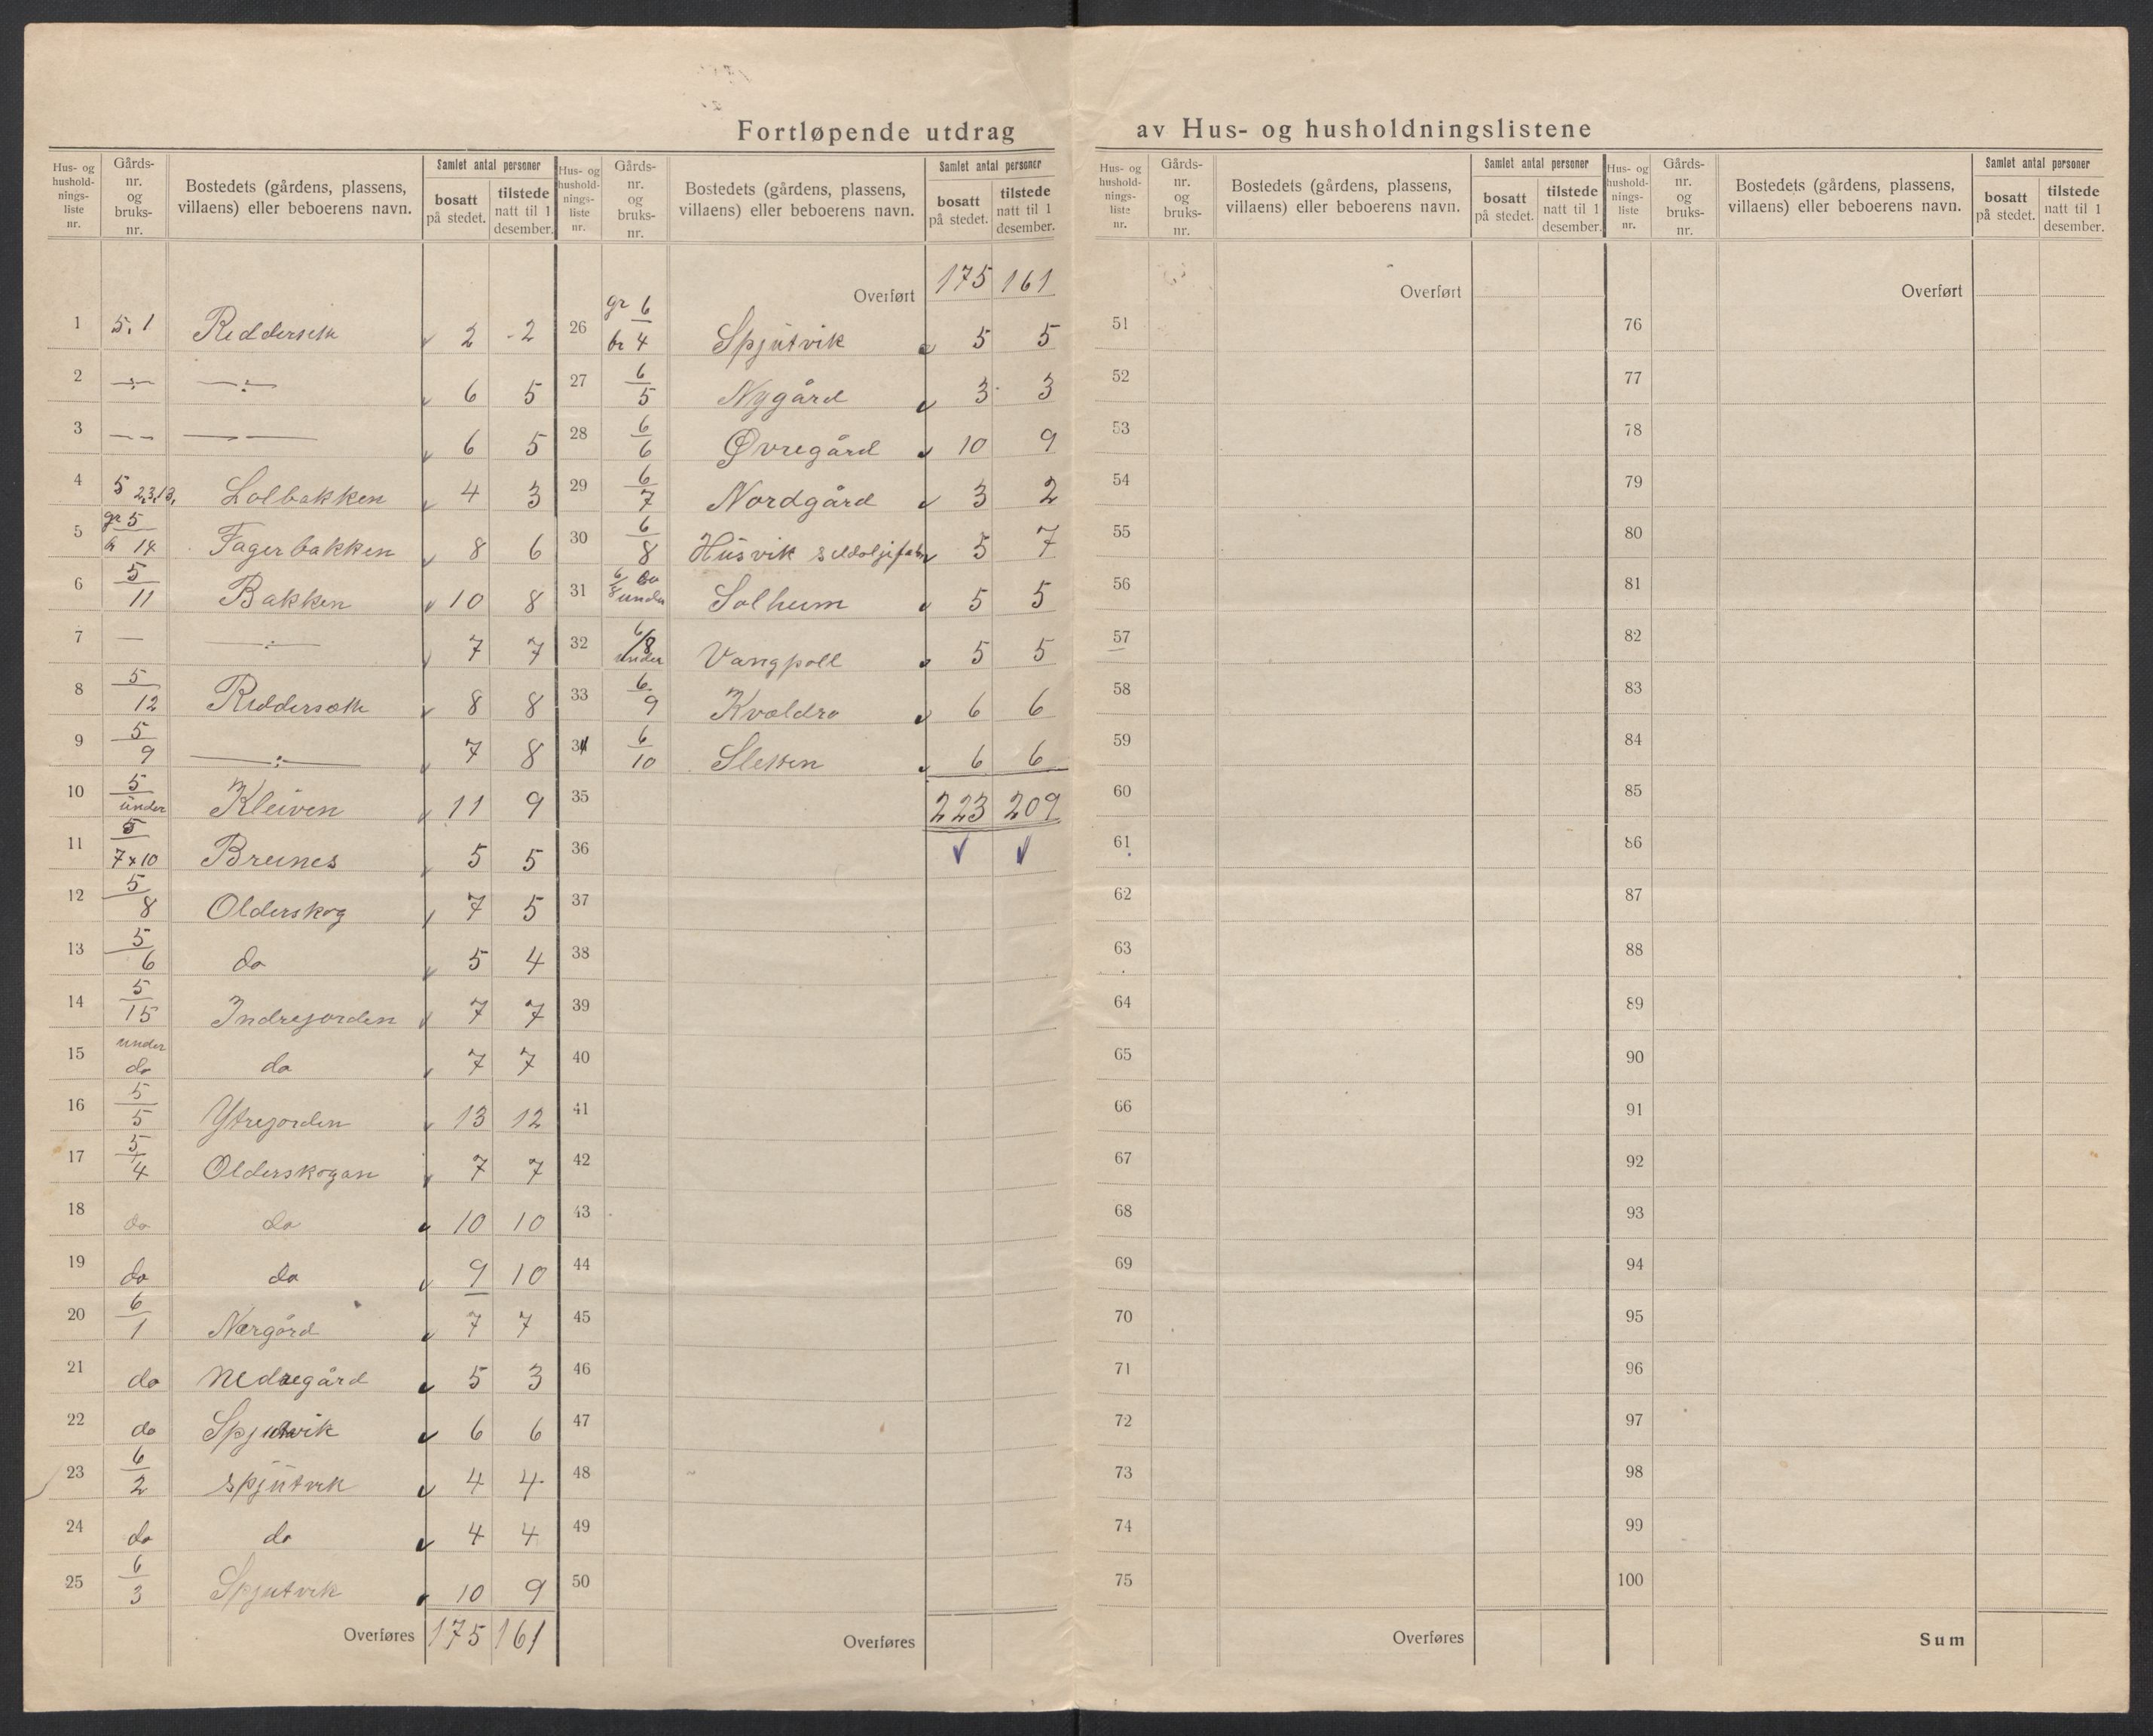 Fortløpende utdrag av Hus- og husholdningslistene
Hus- og hushold-nings-liste nr. Gårds-nr. og bruks-nr. Bostedets (gårdens, plassens, villaens) eller beboerens navn. Samlet antal personer bosatt på stedet. tilstede natt til 1 desember.
1 5,1 2 2
2 —:— —:— 6 5
3 — — — — 6 5
4 5 2,3,13, Lolbakken 4 3
5 gr 5 br 14 Fagerbakken 8 6
6 5/11 Bakken 10 8
7 — —:— 7 7
8 5/12 8 8
9 5/9 —:— 7 8
10 5/under Kleiven 11 9
11 5/7+10 Breines 5 5
12 5/8 Olderskog 7 5
13 5/6 do 5 4
14 5/15 Indrejorden 7 7
15 under do do 7 7
16 5/5 Ytrejorden 13 12
17 5/4 Olderskogan 7 7
18 do do 10 10
19 do do 9 10
20 6/1 Nærgård 7 7
21 do Nedregård 5 3
22 do Spjutvik 6 6
23 6/2 Spjutvik 4 4
24 do do 4 4
25 6/3 Spjutvik 10 9
Overføres 175 161
Hus- og hushold-nings-liste nr. Gårds-nr. og bruks-nr. Bostedets (gårdens, plassens, villaens) eller beboerens navn. Samlet antal personer bosatt på stedet. tilstede natt til 1 desember.
Overført 175 161
26 gr 6 br 4 Spjutvik 5 5
27 6/5 Nygård 3 3
28 6/6 Øvregård 10 9
29 6/7 Nordgård 3 2
30 6/8 Husvik sildoljefabr 5 7
31 6/8 under Solheim 5 5
32 6/8 under Vangpoll 5 5
33 6/9 Kvaldra 6 6
34 6/10 Sletten 6 6
35 223 209
36
37
38
39
40
41
42
43
44
45
46
47
48
49
50
Overføres
Hus- og hushold-nings-liste nr. Gårds-nr. og bruks-nr. Bostedets (gårdens, plassens, villaens) eller beboerens navn. Samlet antal personer bosatt på stedet. tilstede natt til 1 desember.
Overført
51
52
53
54
55
56
57
58
59
60
61
62
63
64
65
66
67
68
69
70
71
72
73
74
75
Overføres
Hus- og hushold-nings-liste nr. Gårds-nr. og bruks-nr. Bostedets (gårdens, plassens, villaens) eller beboerens navn. Samlet antal personer bosatt på stedet. tilstede natt til 1 desember.
Overført
76
77
78
79
80
81
82
83
84
85
86
87
88
89
90
91
92
93
94
95
96
97
98
99
100
Sum